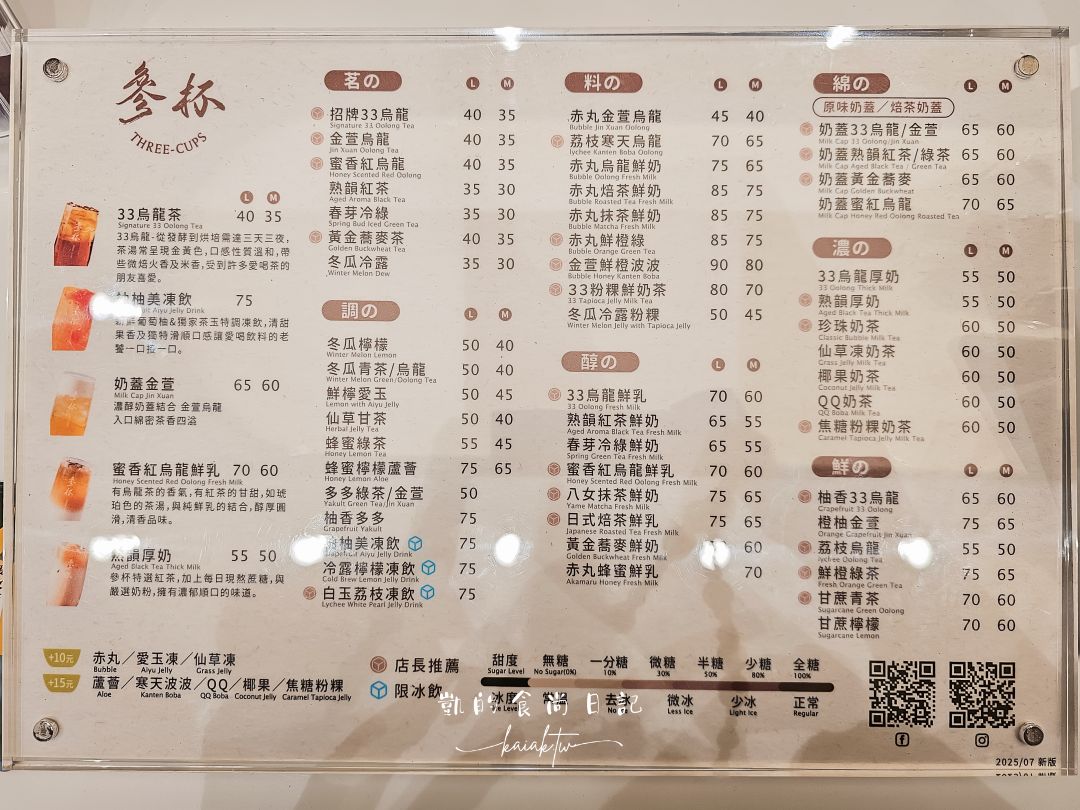 參杯
THREE-CUPS
L M
33烏龍茶 40 35
Signature 33 Oolong Tea
33烏龍-從發酵到烘培需達三天三夜,
茶湯常呈現金黃色,口感性質溫和,帶
些微焙火香及米香,受到許多愛喝茶的
朋友喜愛。
柚美凍飲 75
Aiyu Jelly Drink
新鮮葡萄柚&獨家茶玉特調凍飲,清甜
果香及獨特滑順口感讓愛喝飲料的老
饕一口接一口。
奶蓋金萱 65 60
Milk Cap Jin Xuan
濃醇奶蓋結合 金萱烏龍
入口綿密茶香四溢
蜜香紅烏龍鮮乳 70 60
Honey Scented Red Oolong Fresh Milk
有烏龍茶的香氣,有紅茶的甘甜,如琥
珀色的茶湯,與純鮮乳的結合,醇厚圓
滑,清香品味。
熟韻厚奶 55 50
Aged Black Tea Thick Milk
參杯特選紅茶,加上每日現熬蔗糖,與
嚴選奶粉,擁有濃郁順口的味道。
茗の L M
招牌33烏龍 40 35
Signature 33 Oolong Tea
金萱烏龍 40 35
Jin Xuan Oolong Tea
蜜香紅烏龍 40 35
Honey Scented Red Oolong
熟韻紅茶 35 30
Aged Aroma Black Tea
春芽冷綠 35 30
Spring Bud Iced Green Tea
黃金蕎麥茶 40 35
Golden Buckwheat Tea
冬瓜冷露 35 30
Winter Melon Dew
調の L M
冬瓜檸檬 50 40
Winter Melon Lemon
冬瓜青茶/烏龍 50 40
Winter Melon Green/Oolong Tea
鮮檸愛玉 50 45
Lemon with Aiyu Jelly
仙草甘茶 50 40
Herbal Jelly Tea
蜂蜜綠茶 55 45
Honey Lemon Tea
蜂蜜檸檬蘆薈 75 65
Honey Lemon Aloe
多多綠茶/金萱 50
Yakult Green Tea/Jin Xuan
柚香多多 75
Grapefruit Yakult
柚美凍飲 75
Grapefruit Aiyu Jelly Drink
冷露檸檬凍飲 75
Cold Brew Lemon Jelly Drink
白玉荔枝凍飲 75
Lychee White Pearl Jelly Drink
料の L M
赤丸金萱烏龍 45 40
Bubble Jin Xuan Oolong
荔枝寒天烏龍 70 65
lychee Kanten Boba Oolong
赤丸烏龍鮮奶 75 65
Bubble Oolong Fresh Milk
赤丸焙茶鮮奶 85 75
Bubble Roasted Tea Fresh Milk
赤丸抹茶鮮奶 85 75
Bubble Matcha Fresh Milk
赤丸鮮橙綠 85 75
Bubble Orange Green Tea
金萱鮮橙波波 90 80
Bubble Honey Kanten Boba
33粉粿鮮奶茶 80 70
33 Tapioca Jelly Milk Tea
冬瓜冷露粉粿 50 45
Winter Melon Jelly with Tapioca Jelly
醇の L M
33烏龍鮮乳 70 60
33 Oolong Fresh Milk
熟韻紅茶鮮奶 65 55
Aged Aroma Black Tea Fresh Milk
春芽冷綠鮮奶 65 55
Spring Green Tea Fresh Milk
蜜香紅烏龍鮮乳 70 60
Honey Scented Red Oolong Fresh Milk
八女抹茶鮮奶 75 65
Yame Matcha Fresh Milk
日式焙茶鮮乳 75 65
Japanese Roasted Tea Fresh Milk
黃金蕎麥鮮奶 60
Golden Buckwheat Fresh Milk
赤丸蜂蜜鮮乳 70
Akamaru Honey Fresh Milk
綿の L M
原味奶蓋/焙茶奶蓋
奶蓋33烏龍/金萱 65 60
Milk Cap 33 Oolong/Jin Xuan
奶蓋熟韻紅茶/綠茶 65 60
Milk Cap Aged Black Tea / Green Tea
奶蓋黃金蕎麥 65 60
Milk Cap Golden Buckwheat
奶蓋蜜紅烏龍 70 65
Milk Cap Honey Red Oolong Roasted Tea
濃の L M
33烏龍厚奶 55 50
33 Oolong Thick Milk
熟韻厚奶 55 50
Aged Black Tea Thick Milk
珍珠奶茶 60 50
Classic Bubble Milk Tea
仙草凍奶茶 60 50
Grass Jelly Milk Tea
椰果奶茶 60 50
Coconut Jelly Milk Tea
QQ奶茶 60 50
QQ Boba Milk Tea
焦糖粉粿奶茶 60 50
Caramel Tapioca Jelly Milk Tea
鮮の L M
柚香33烏龍 65 60
Grapefruit 33 Oolong
橙柚金萱 75 65
Orange Grapefruit Jin Xuan
荔枝烏龍 55 50
lychee Oolong Tea
鮮橙綠茶 75 65
Fresh Orange Green Tea
甘蔗青茶 70 60
Sugarcane Green Oolong
甘蔗檸檬 70 60
Sugarcane Lemon
+10元 赤丸/愛玉凍/仙草凍
Bubble Aiyu Jelly Grass Jelly
+15元 蘆薈/寒天波波/QQ/椰果/焦糖粉粿
Aloe Kanten Boba QQ Boba Coconut Jelly Caramel Tapioca Jelly
店長推薦
限冰飲
甜度 無糖 一分糖 微糖 半糖 少糖 全糖
Sugar Level No Sugar(0%) 10% 30% 50% 80% 100%
冰度 常溫 去冰 微冰 少冰 正常
Less Ice Light Ice Regular
凱的食尚日記
kaiak.tw
2025/07 新版